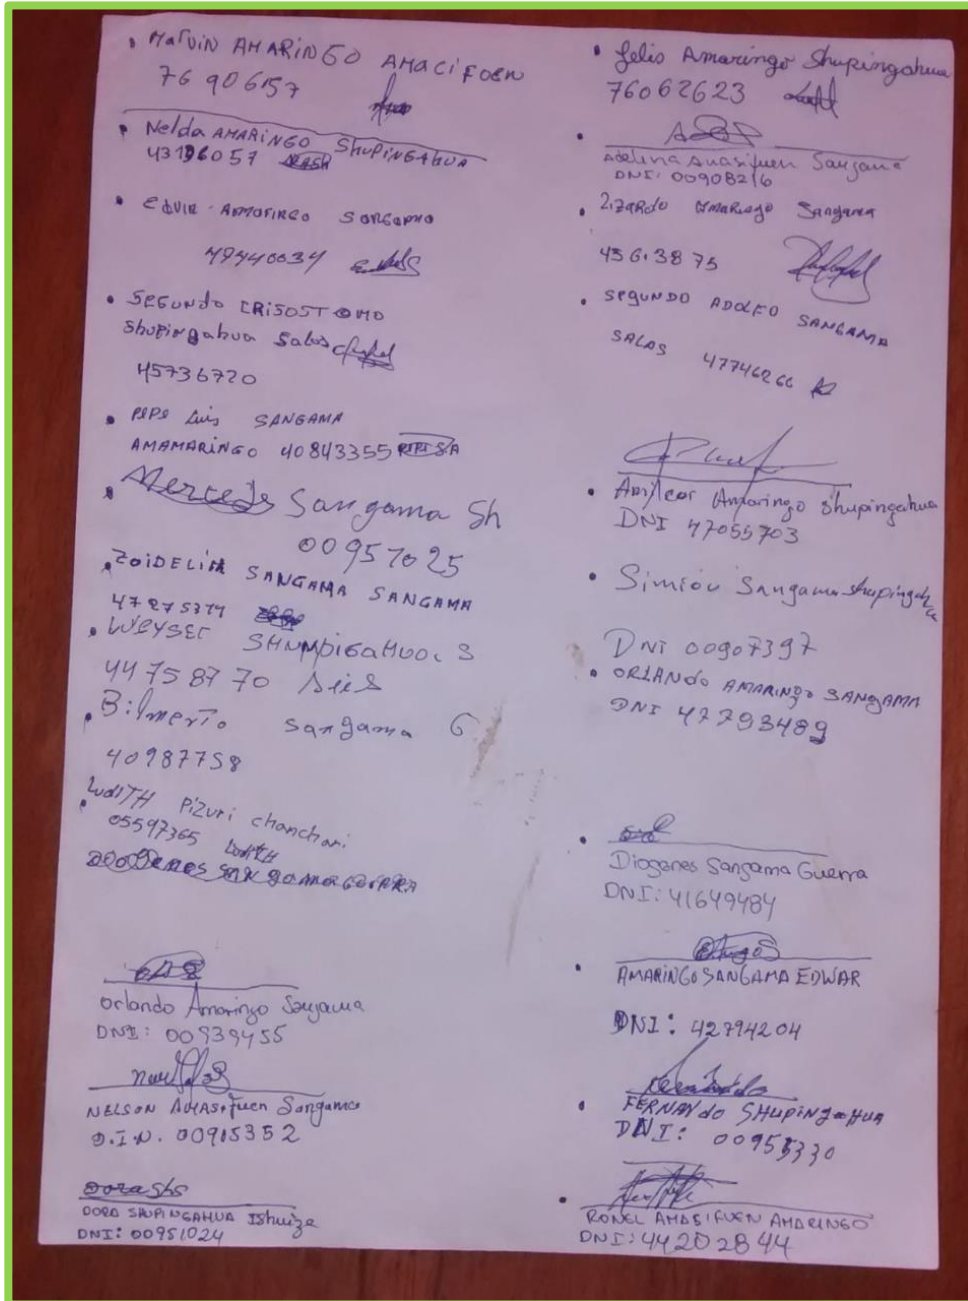 Marvin AMARINGO AMACIFOEN
76906157
Nelda AMARINGO SHUPINGAHUA
43196057
EDVIR AMARINGO SANGAMA
49440034
SEGUNDO CRISOSTOMO
Shupingahua Salas
45736720
PEPE Luis SANGAMA
AMAMARINGO 40843355 PEPE SA
Mercedes Sangama Sh
00957025
ZOIDELITA SANGAMA SANGAMA
47275379
WEYSEC SHUMPIGAHUO. S
44758770
Bilmerto sangama G
40987758
LudITH Pizuri chanchari
05597365 LudITH
Orlando Amaringo Sangama
DNI: 00939455
NELSON AMASifuen Sangama
D.I.N. 00915352
Dora Shs
DORA SHUPINGAHUA Ishuiza
DNI: 00951024
Jelis Amaringo Shupingahua
76062623
Adelina Amasifuen Sangama
DNI: 00908216
Lizardo Amaringo Sangama
45613875
SEGUNDO ADOLFO SANGAMA
SALAS 47746266
Amilcar Amaringo Shupingahua
DNI 47055703
Simiou Sangama shupingahua
DNI 00907397
ORLANDO AMARINGO SANGAMA
DNI 47793489
Diogenes Sangama Guerra
DNI: 41649484
AMARINGO SANGAMA EDWAR
DNI: 42794204
FERNANdo SHUPINgaHUA
DNI: 00955330
RONEL AMASIFUEN AMARINGO
DNI: 44202844